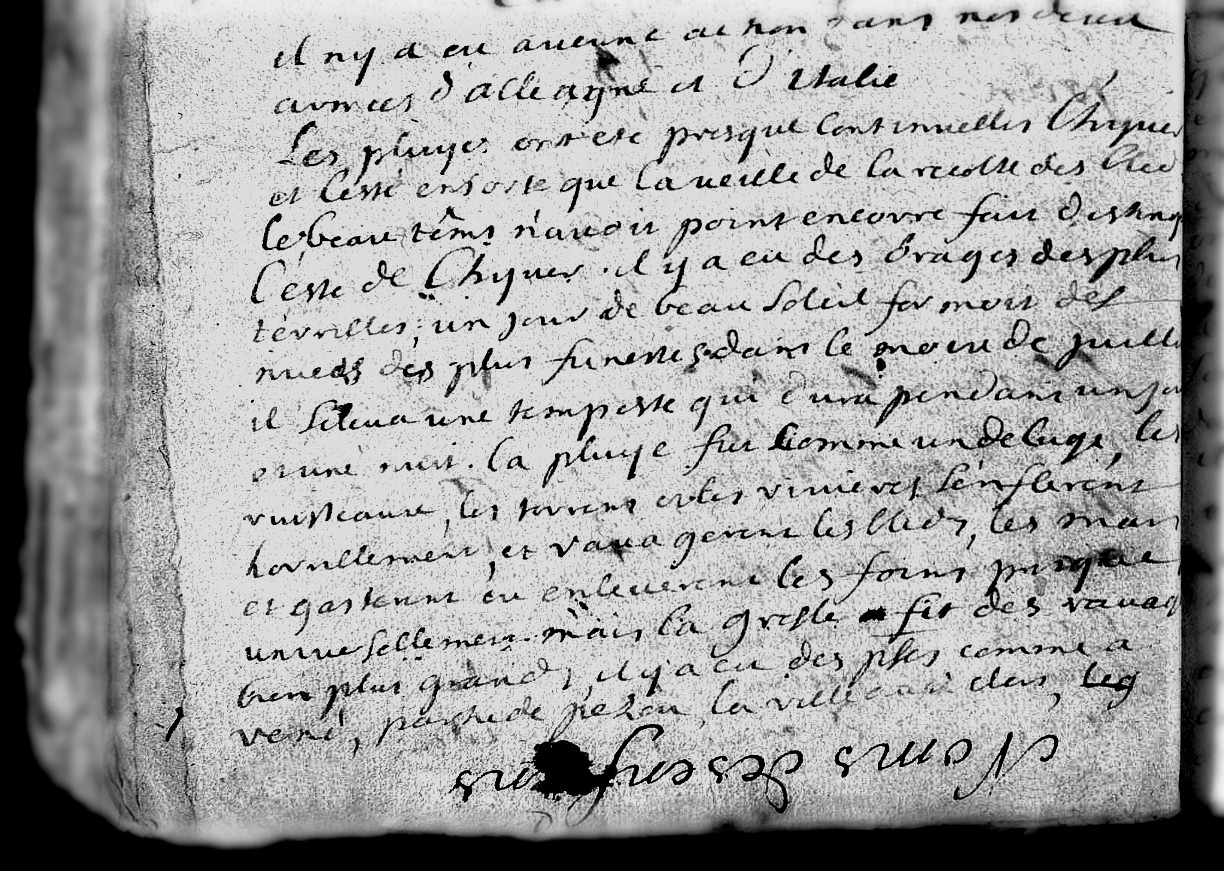 il ny a eu aucune action dans nos deux
armées d'alleagne et d'italie
Les pluyes ont esté presque continuelles lhyver
et lesté ensorte que la veille de la recolte des bled
le beau têms n'avoit point encorre fait disting
l'esté de lhyver. il y a eu des orages des plus
terrilles, un jour de beau soleil formoit des
nueés des plus funestes dans le mois de juill
il s'eleva une tempeste qui dura pendant un jo
et une nuit. la pluye fut comme un deluge, les
ruisseaux, les torrens et les rivieres s'enflerent
horrillement, et ravagerent les bleds, les
et gasterent ou enleverent les foins presque
universellement mais la gresle fit des ravag
bien plus grands, il y a eu des comme a
partie de la ville
Nems des